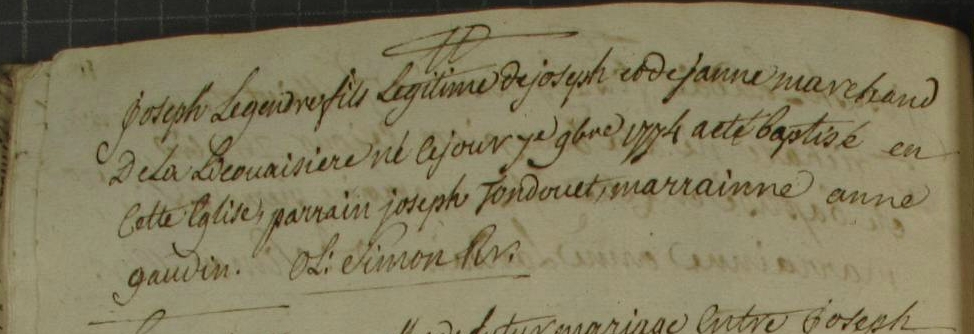 joseph Legendre fils Legitime de joseph et de janne marchand
De La Beouaisiere né Cejour 7e 9bre 1774 a eté baptisé en
Cette Eglise, parrain joseph Tondouet, marrainne anne
gaudin. Ol: Simon
futur mariage Entre joseph